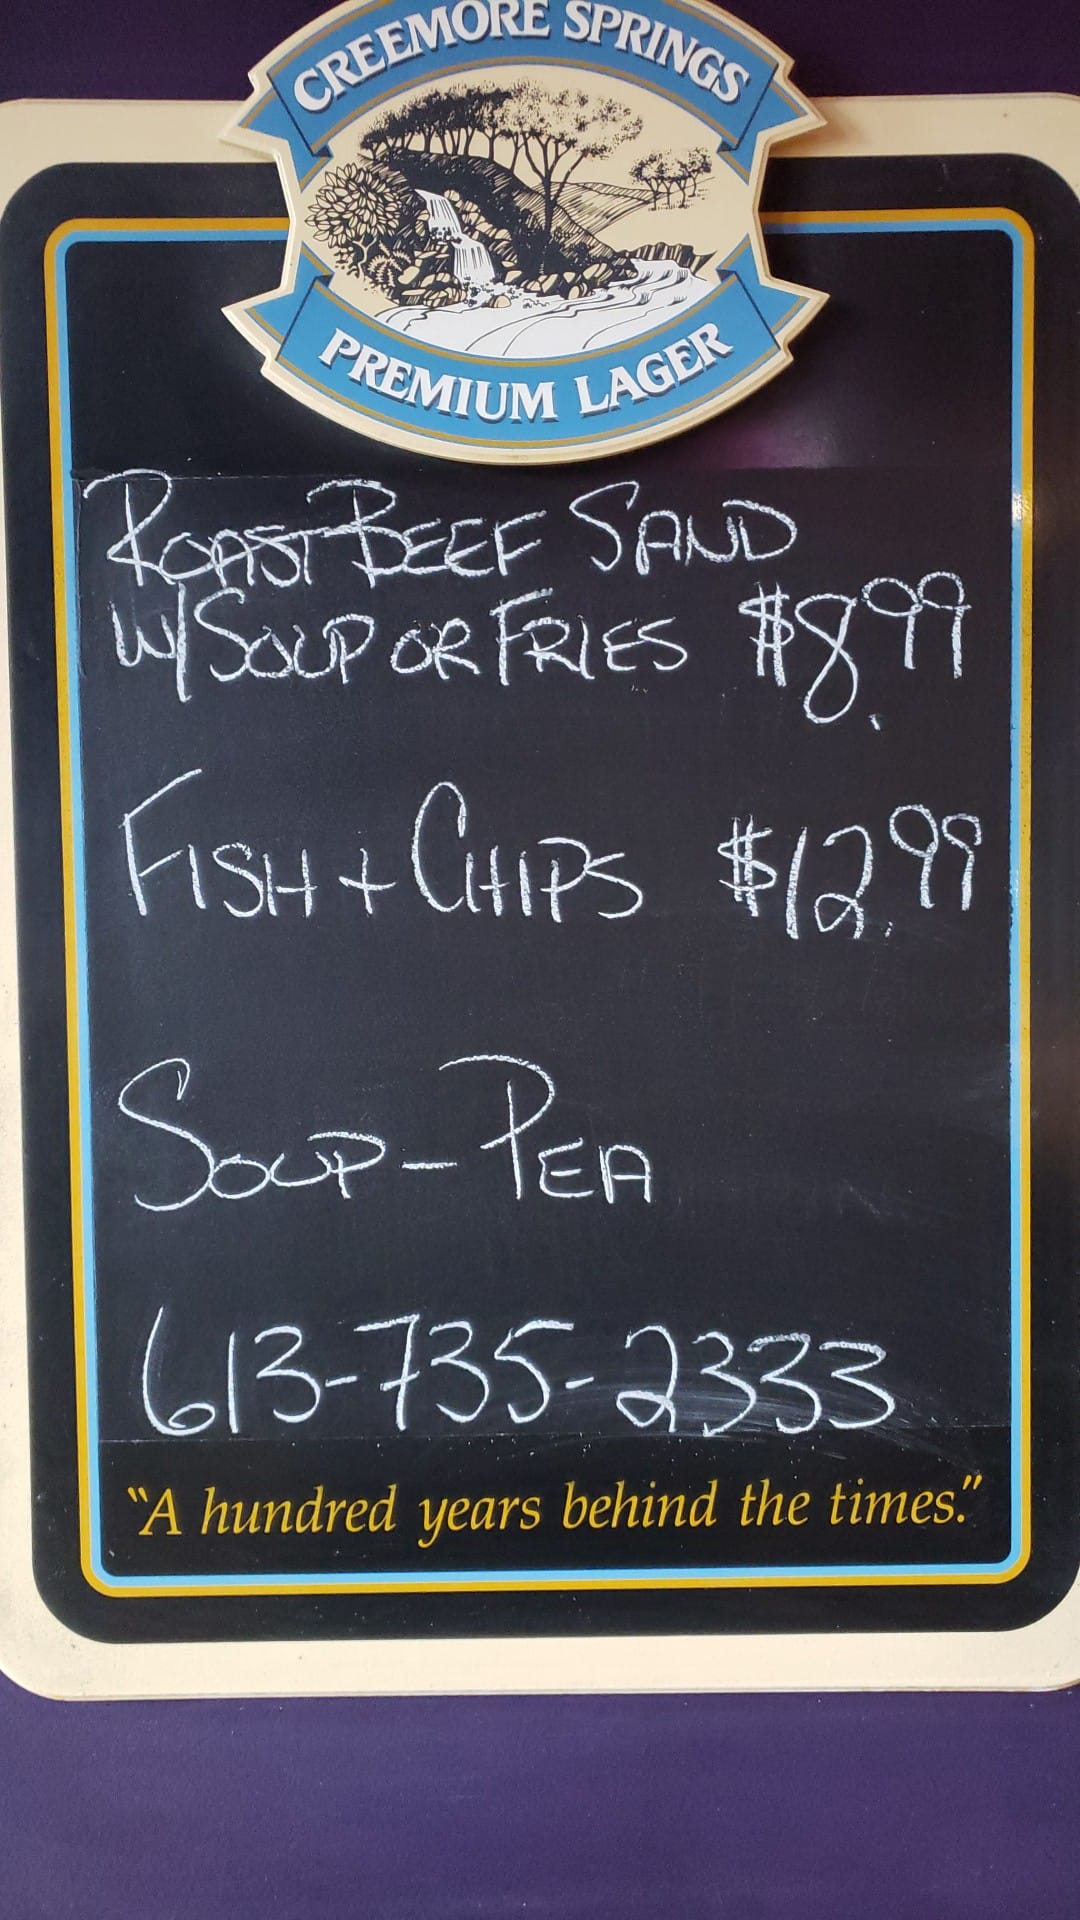 CREEMORE SPRINGS
PREMIUM LAGER
ROAST BEEF SAND
W/ SOUP OR FRIES $8.99
FISH + CHIPS $12.99
SOUP - PEA
613-735-2333
"A hundred years behind the times."